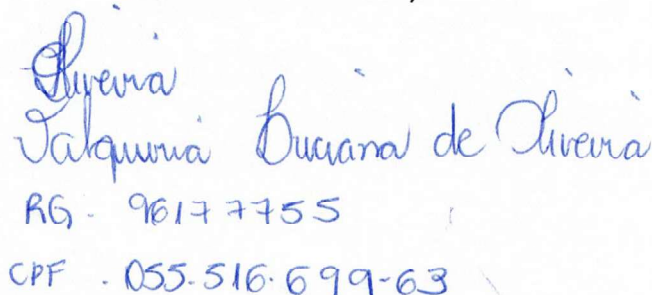 Oliveira
Valquiria Luciana de Oliveira
RG - 96177755
CPF . 055.516.699-63